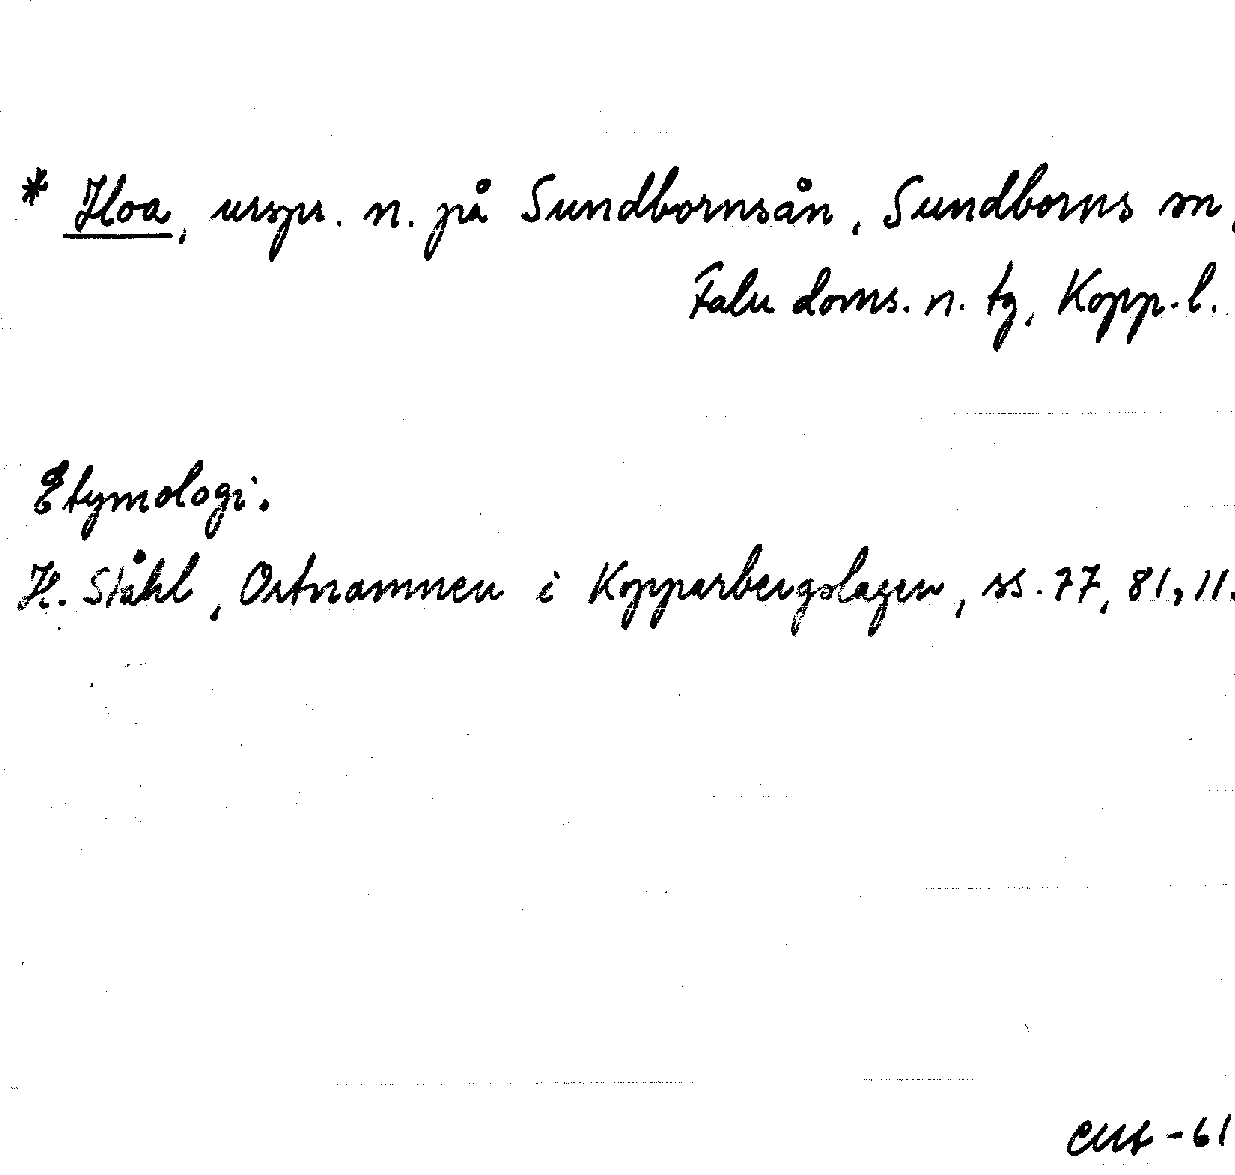 * Hoa, urspr. n. på Sundbornsån, Sundborns sn,
Falu doms. n. tg, Kopp. l.
Etymologi.
H. Ståhl, Ortnamnen i Kopparbergslagen, ss. 77, 81, 11.
-61